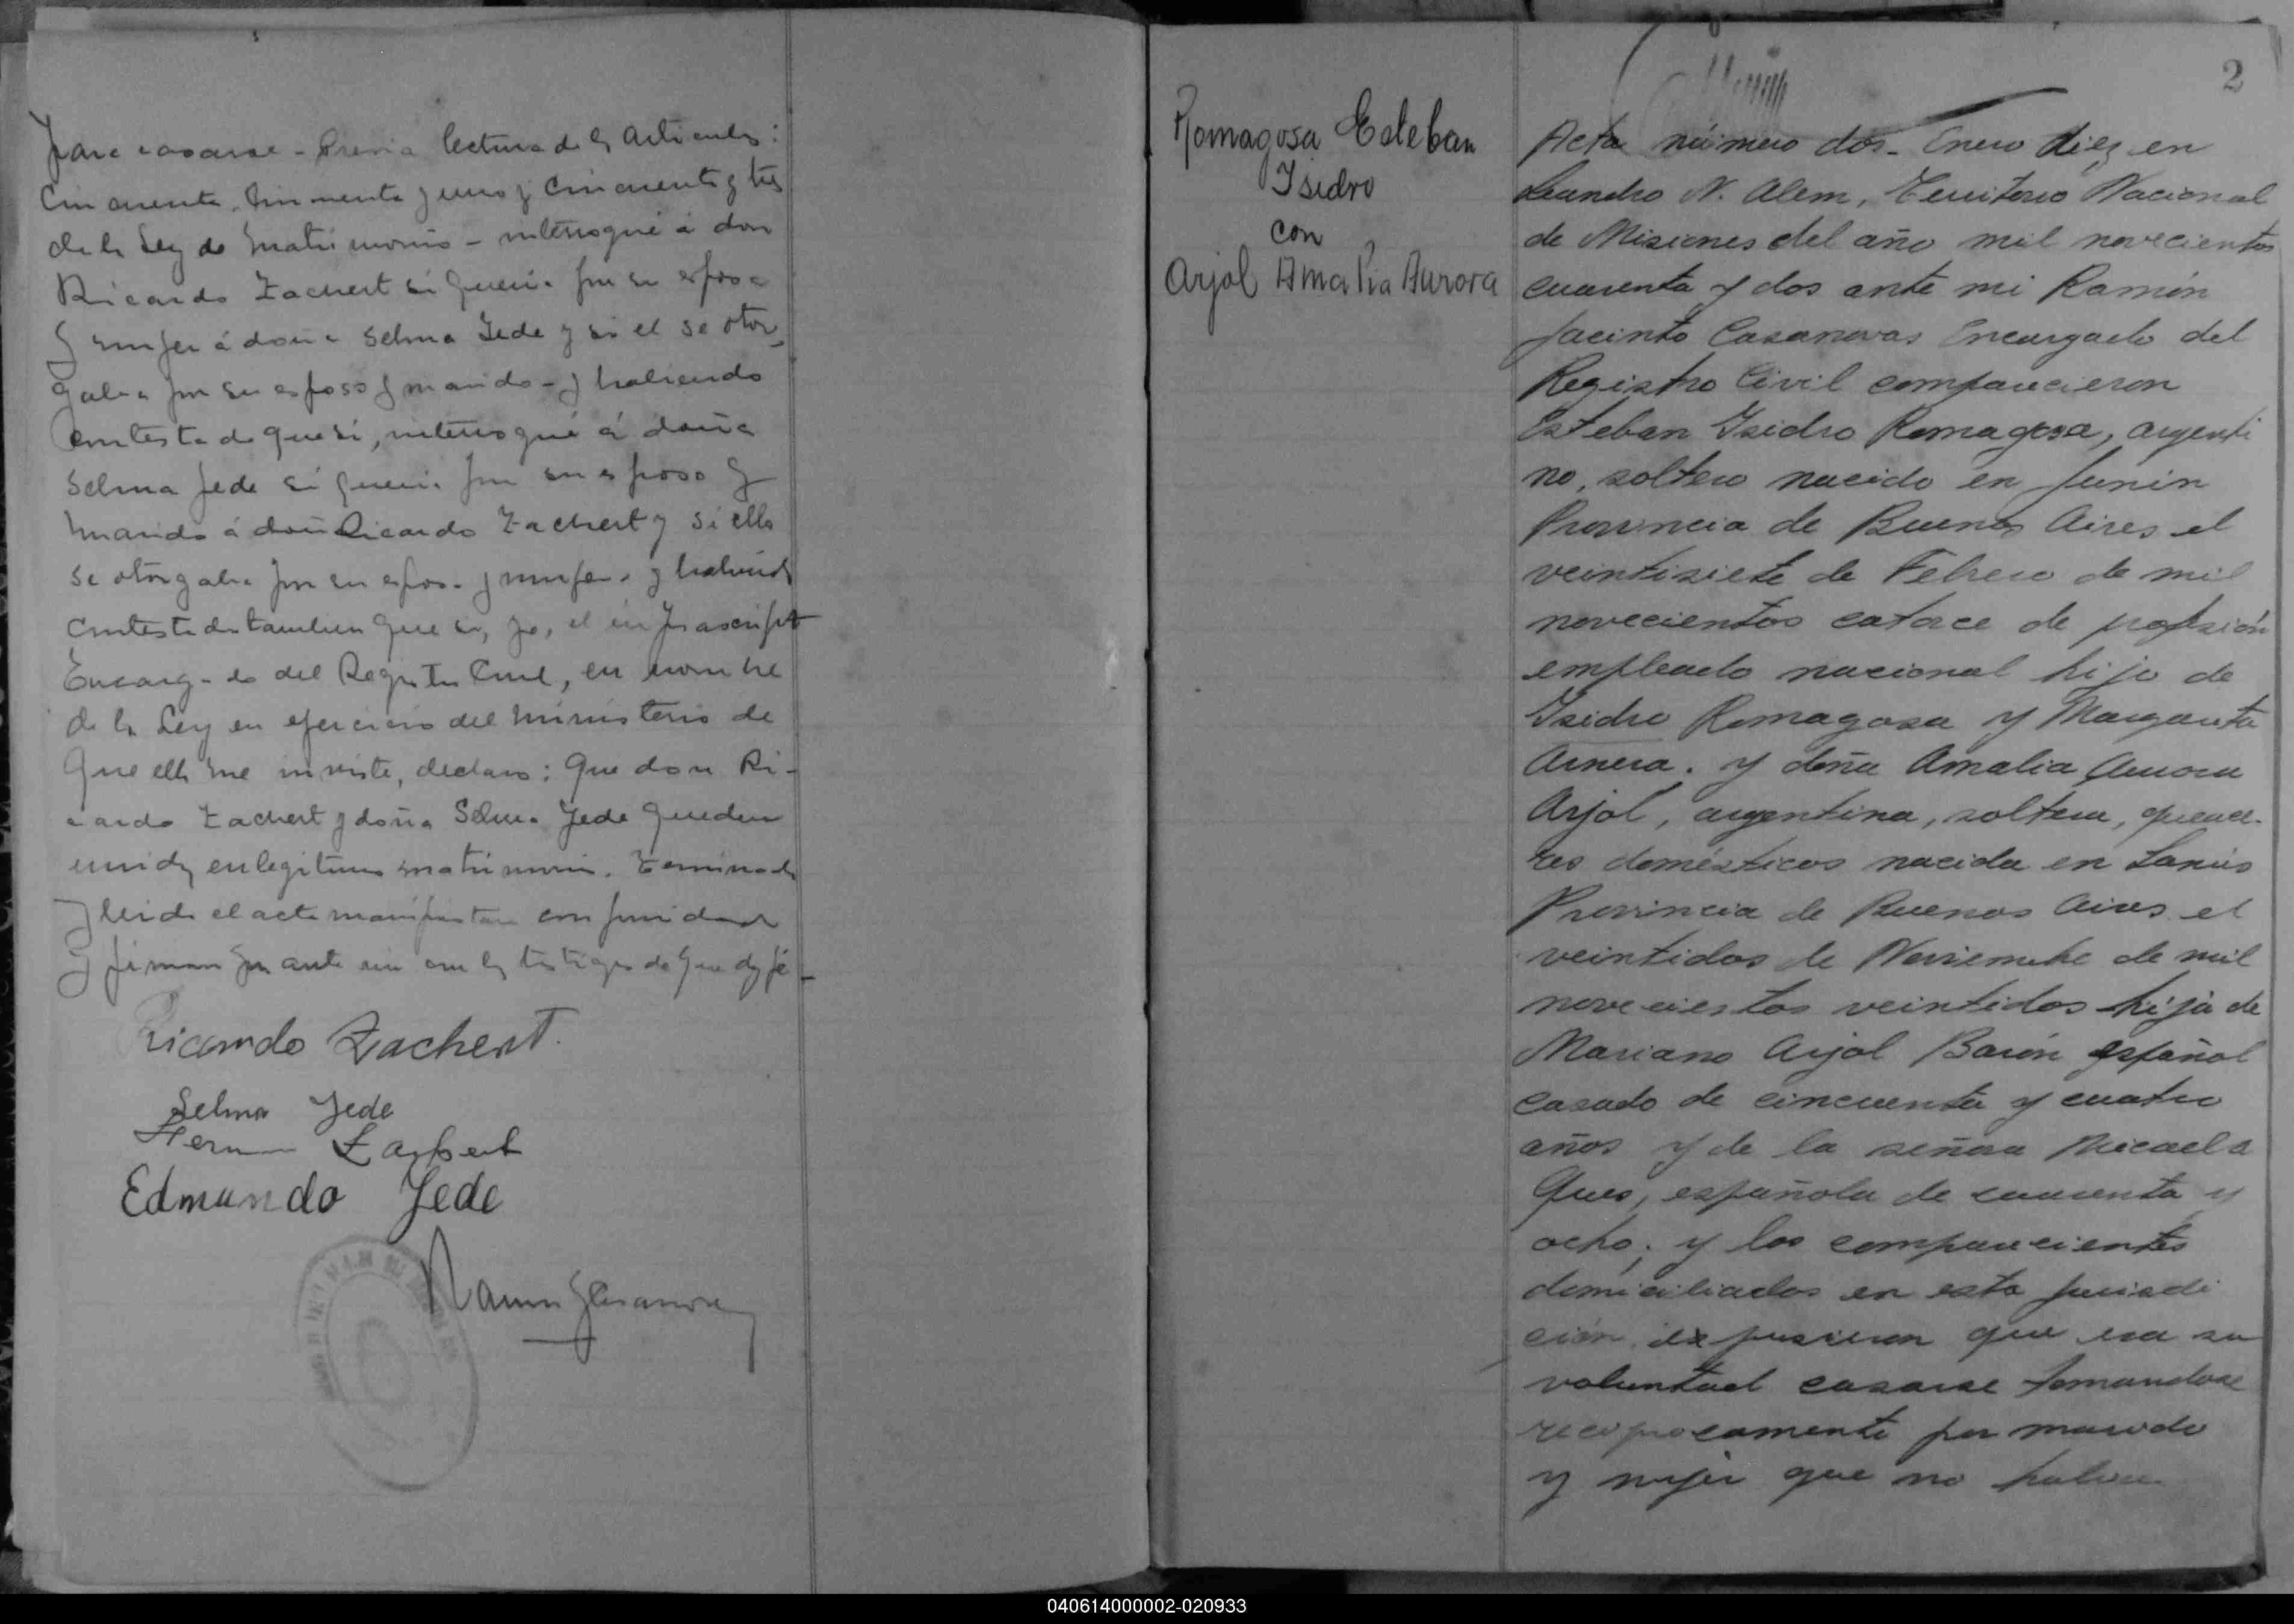 para casarse - Previa lectura de ls articulos:
Cincuenta, Cincuenta y uno y Cincuenta y tres
de la Ley de Matrimonio - interrogué á don
Ricardo Zachert si queria por su esposa
y mujer á doña Selma Jede y si el se otor
gaba por su esposo y marido - y habiendo
contestado que si, interrogué á doña
Selma Jede si queria por su esposo y
marido á don Ricardo Zachert y si ella
se otorgaba por su esposa y mujer y habiendo
contestado tambien que si, yo, el infrascripto
Encargado del Registro Civil, en nombre
de la Ley en ejercicio del ministerio de
que ella me inviste, declaro: Que don Ri-
cardo Zachert y doña Selma Jede quedan
unidos en legitimo matrimonio. Terminada
y leida el acta manifiestan conformidad
y firman por ante mi con ls testigos de que doy fé -
Ricardo Zachert.
Selma Jede
Edmundo Jede
2
Romagosa Esteban
Isidro
con
Arjol Amalia Aurora
Acta número dos - Enero diez en
Leandro N. Alem, Territorio Nacional
de Misiones del año mil novecientos
cuarenta y dos ante mi Ramón
Jacinto Casanovas Encargado del
Registro Civil comparecieron
Esteban Isidro Romagosa, argenti
no, soltero nacido en Junin
Provincia de Buenos Aires el
veintisiete de Febrero de mil
novecientos catorce de profesión
empleado nacional hijo de
Isidro Romagosa y Margarita
Arnera. y doña Amalia Aurora
Arjol, argentina, soltera, quea-
res domésticos nacida en Lanús
Provincia de Buenos Aires el
veintidos de Noviembre de mil
novecientos veintidos hija de
Mariano Arjol Barón español
casado de cincuenta y cuatro
años y de la señora Micaela
Gues, española de cuarenta y
ocho; y los comparecientes
domiciliados en esta jurisdi
ción expusieron que era su
voluntad casarse tomandose
reciprocamente por marido
y mujer que no habia
040614000002-020933